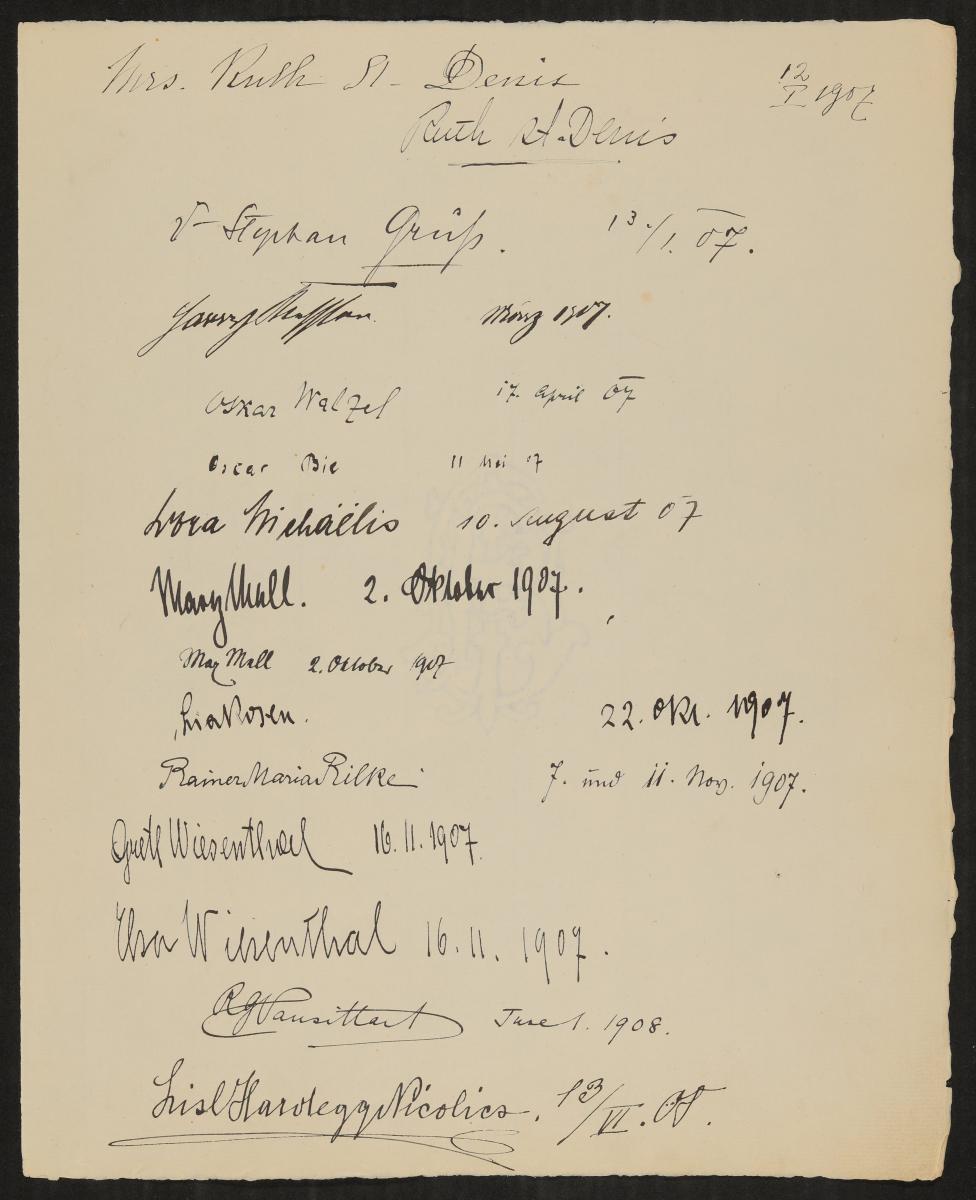 Mrs. Ruth St. Denis
12/I 1907
Ruth St. Denis
Dr Stephan Gruß. 13./1. 07.
März 1907.
Oskar Walzel 17. April 07
Oscar Bie 11 Mai 07
Dora Michaëlis 10. August 07
Mary Mell. 2. Oktober 1907.
Max Mell 2. Oktober 1907
Lia Rosen. 22. Okt. 1907.
Rainer Maria Rilke 7. und 11. Nov. 1907.
Grete Wiesenthal 16.11.1907.
Elsa Wiesenthal 16.11.1907.
RGVansittart June 1. 1908.
Lisl Hardegg Nicolics. 13/VI. 08.